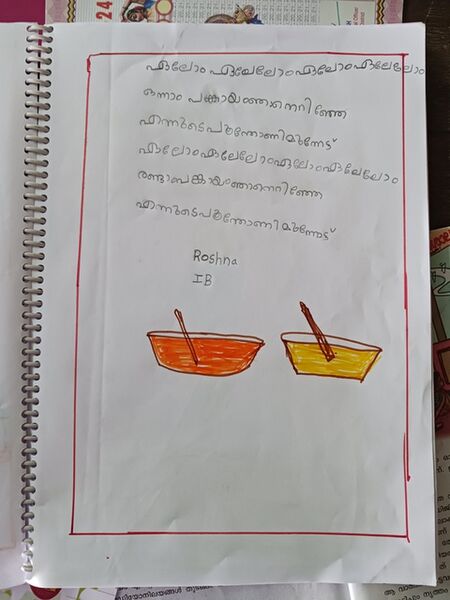 ഏലോം ഏലേലോം ഏലോം ഏലേലോം
ഒന്നാം പങ്കായം ഞാനെറിഞ്ഞേ
എന്നുടെ പൂന്തോണി മുന്നോട്ട്
ഏലോം ഏലേലോം ഏലോം ഏലേലോം
രണ്ടാം പങ്കായം ഞാനെറിഞ്ഞേ
എന്നുടെ പൂന്തോണി മുന്നോട്ട്
Roshna
IB
24